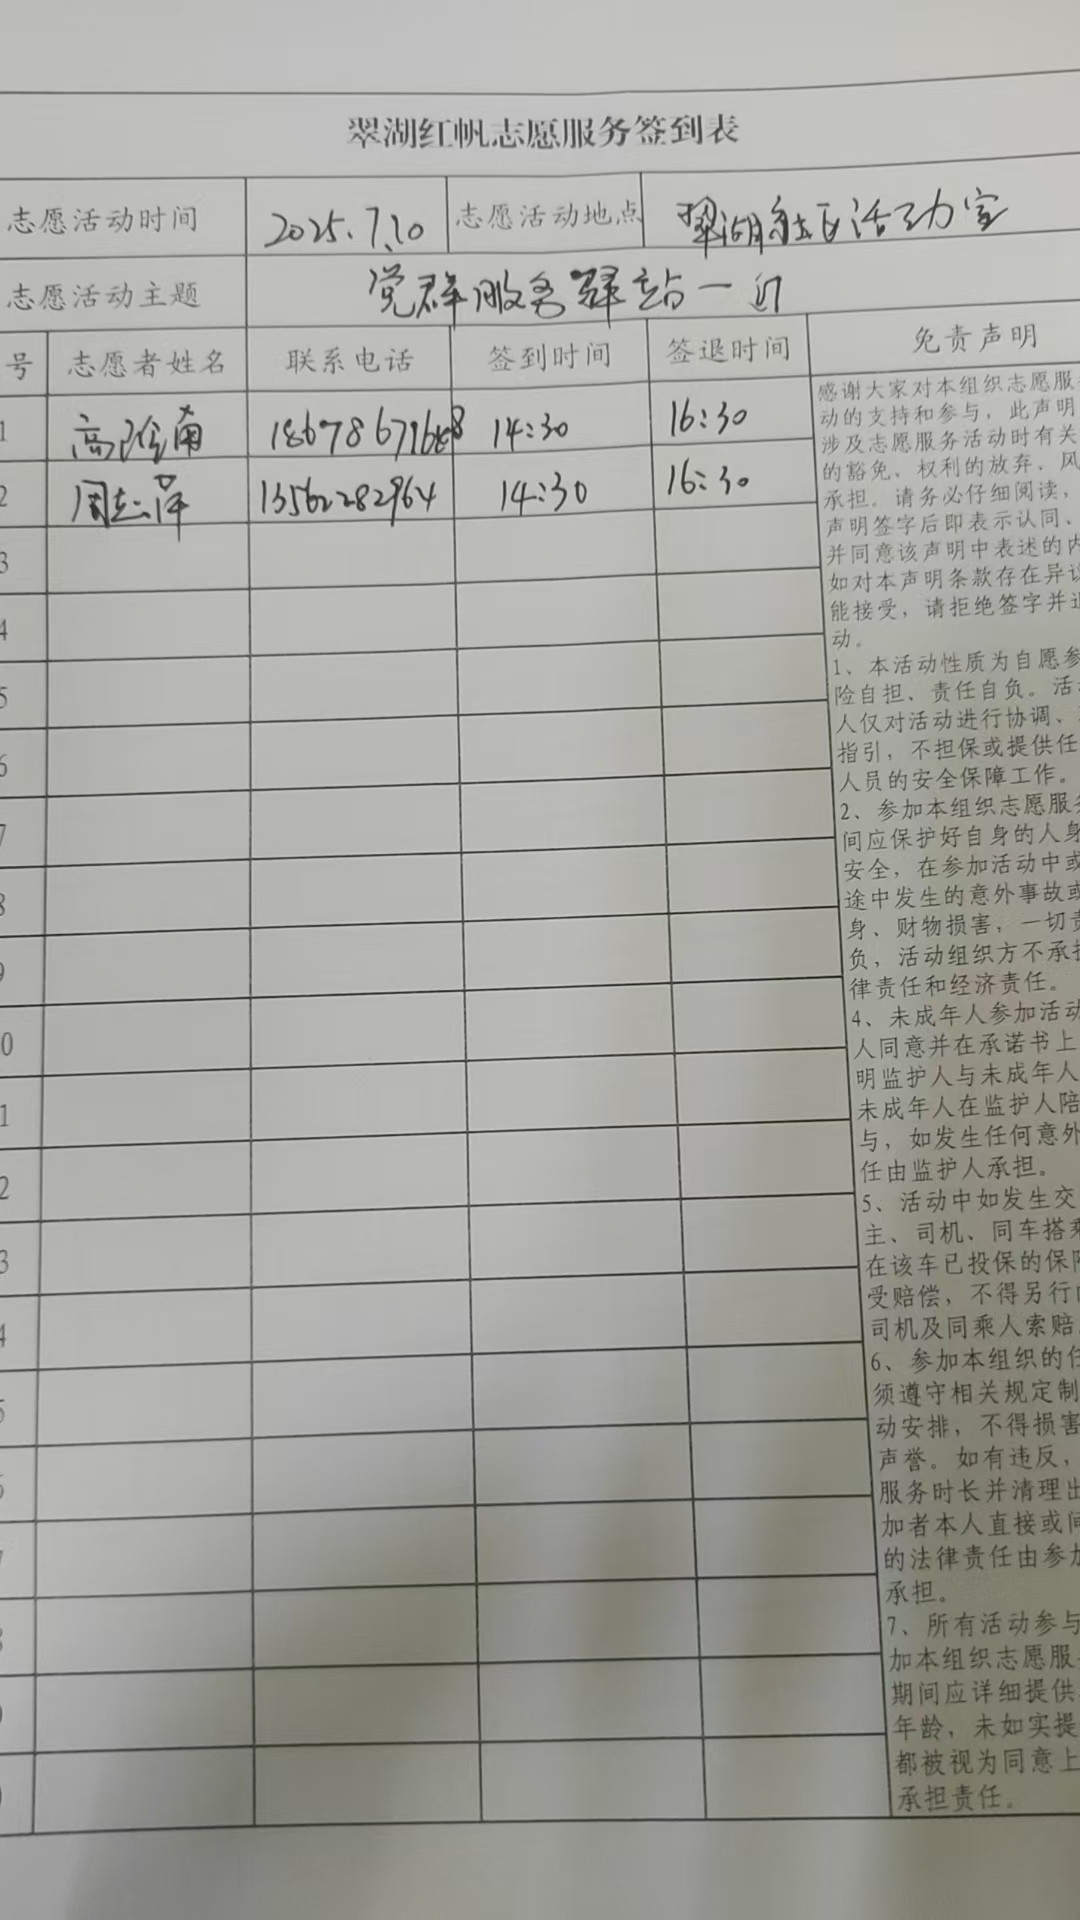 翠湖红帆志愿服务签到表
志愿活动时间 2025.7.10 志愿活动地点 翠湖社区活动室
志愿活动主题 党群服务驿站一
号 志愿者姓名 联系电话 签到时间 签退时间 免责声明
1 高 南 14:30 16:30
2 周志泽 13562282964 14:30 16:30
3
4
5
6
7
8
9
0
1
2
3
4
5
6
7
8
9
0
感谢大家对本组织志愿服
动的支持和参与，此声明
涉及志愿服务活动时有关
的豁免、权利的放弃、风
承担。请务必仔细阅读，
声明签字后即表示认同、
并同意该声明中表述的内
如对本声明条款存在异议
能接受，请拒绝签字并退
动。
1、本活动性质为自愿参
险自担、责任自负。活
人仅对活动进行协调、
指引，不担保或提供任
人员的安全保障工作。
2、参加本组织志愿服
间应保护好自身的人身
安全，在参加活动中或
途中发生的意外事故或
身、财物损害，一切责
负，活动组织方不承担
律责任和经济责任。
4、未成年人参加活动
人同意并在承诺书上
明监护人与未成年人
未成年人在监护人陪
与，如发生任何意外
任由监护人承担。
5、活动中如发生交
主、司机、同车搭乘
在该车已投保的保险
受赔偿，不得另行
司机及同乘人索赔
6、参加本组织的任
须遵守相关规定制
动安排，不得损害
声誉。如有违反，
服务时长并清理出
加者本人直接或间
的法律责任由参加
承担。
7、所有活动参与
加本组织志愿服
期间应详细提供
年龄，未如实提
都被视为同意上
承担责任。